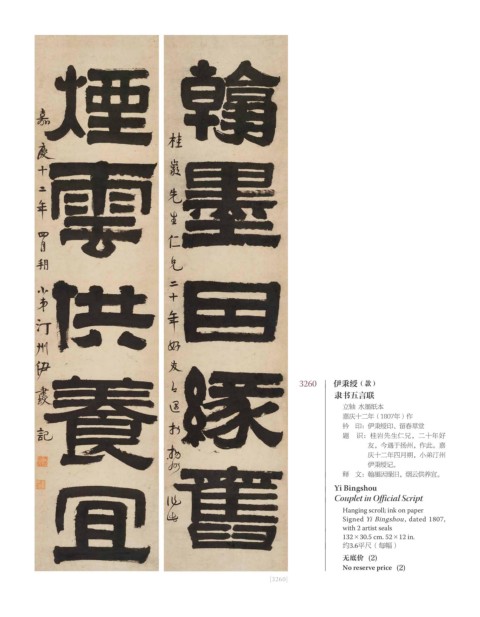 翰墨因緣舊
桂巖先生仁兄二十年好友今遇於揚州作此
煙雲供養宜
嘉慶十二年四月朔小弟汀州伊秉綬記
3260
伊秉绶（款）
隶书五言联
立轴 水墨纸本
嘉庆十二年（1807年）作
钤　印：伊秉绶印、留春草堂
题　识：桂岩先生仁兄，二十年好
友，今遇于扬州，作此。嘉
庆十二年四月朔，小弟汀州
伊秉绶记。
释　文：翰墨因缘旧，烟云供养宜。
Yi Bingshou
Couplet in Official Script
Hanging scroll; ink on paper
Signed Yi Bingshou, dated 1807,
with 2 artist seals
132 × 30.5 cm. 52 × 12 in.
约3.6平尺（每幅）
无底价 (2)
No reserve price (2)
[3260]